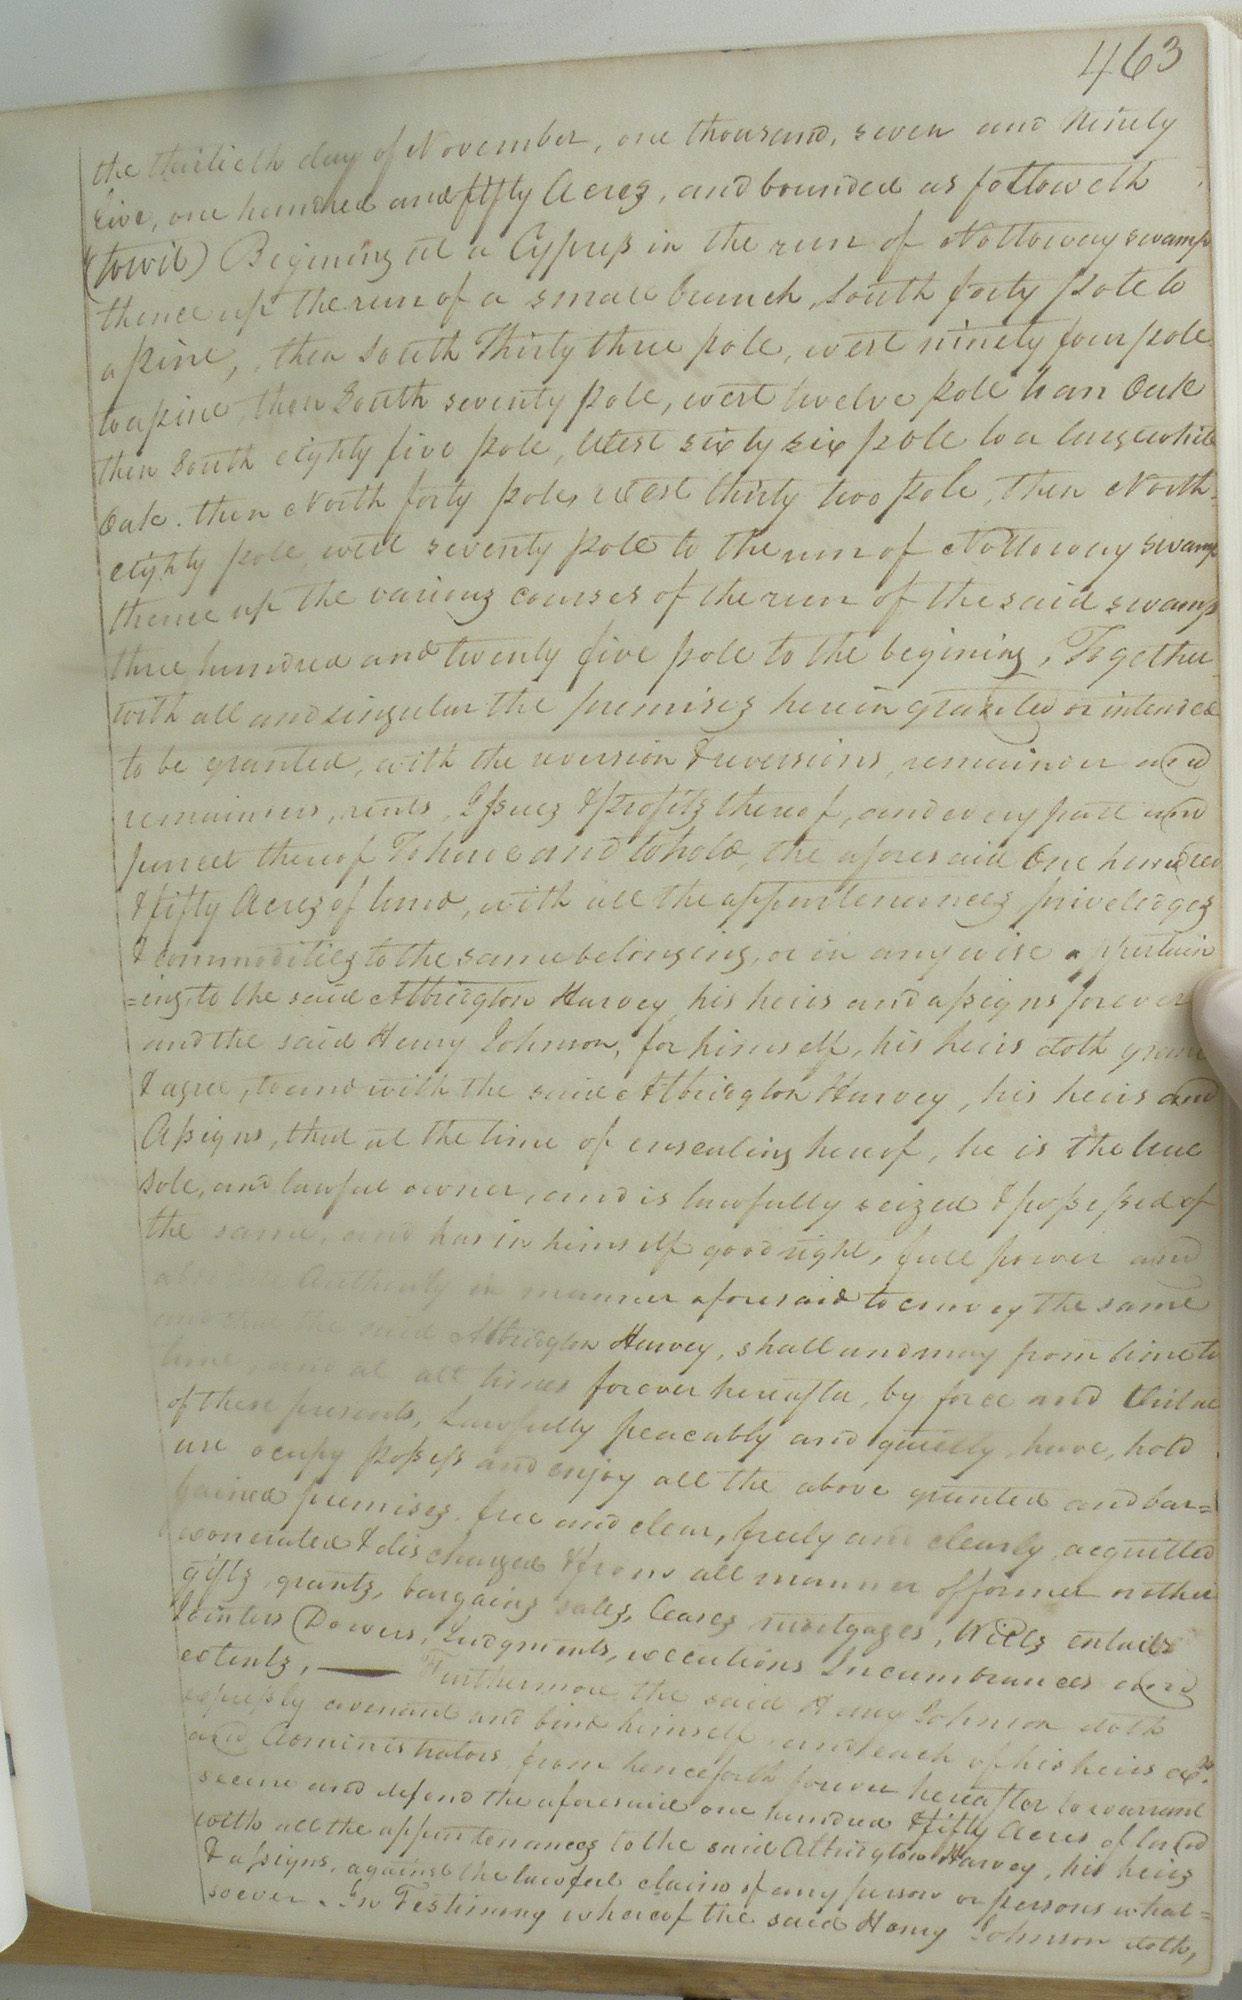 463
the thirtieth day of November, one thousand, seven and Ninety
five, one hundred and fifty Acres, and bounded as followeth
(towit) Begining at a Cypress in the run of Nottoway swamp
thence up the run of a small branch, South forty pole to
a pine, then South Thirty three pole, west ninety four pole
to a pine, then South seventy pole, west twelve pole to an Oak
then South eighty five pole, West sixty six pole to a large white
Oak. then North forty pole, West thirty two pole, then North
eighty pole, west seventy pole to the run of Nottoway swamp
thence up the various courses of the run of the said swamp
three hundred and twenty five pole to the begining, Together
with all and singular the premises herein granted or intended
to be granted, with the reversion & reversions, remainder and
remainders, rents, Issues & Profits thereof, and every part and
parcel thereof To have and to hold, the aforesaid One hundred
& fifty Acres of land, with all the appurtenances, priveledges
& commodities to the same belonging, or in any wise appertain
=ing, to the said Albridgton Harvey, his heirs and assigns forever
and the said Henry Johnson, for himself, his heirs doth grant
& agree, to and with the said Albridgton Harvey, his heirs and
Assigns, that at the time of ensealing hereof, he is the true
sole, and lawful owner, and is lawfully seized & possessed of
the same, and has in himself good right, full power and
absolute Authority in manner aforesaid to convey the same
and that the said Albridgton Harvey, shall and may from time to
time, and at all times forever hereafter, by force and virtue
of these presents, Lawfully peacably and quietly, have, hold
use ocupy possess and enjoy all the above granted and bar=
gained premises, free and clear, freely and clearly, acquitted
exonerated & discharged & from all manner of former or other
gifts, grants, bargains sales, leases mortgages, Wills entails
Jointers Dowers, Judgments, executions Incumbrances and
extents, — Furthermore, the said Henry Johnson doth
expressly covenant and bind himself and each of his heirs exrs.
and Administrators from henceforth forever hereafter to warrant
secure and defend the aforesaid one hundred & fifty Acres of land
with all the appurtenances to the said Albridgton Harvey, his heirs
& assigns, against the lawful claims of any person or persons what=
soever. In Testimony whereof the said Henry Johnson doth,